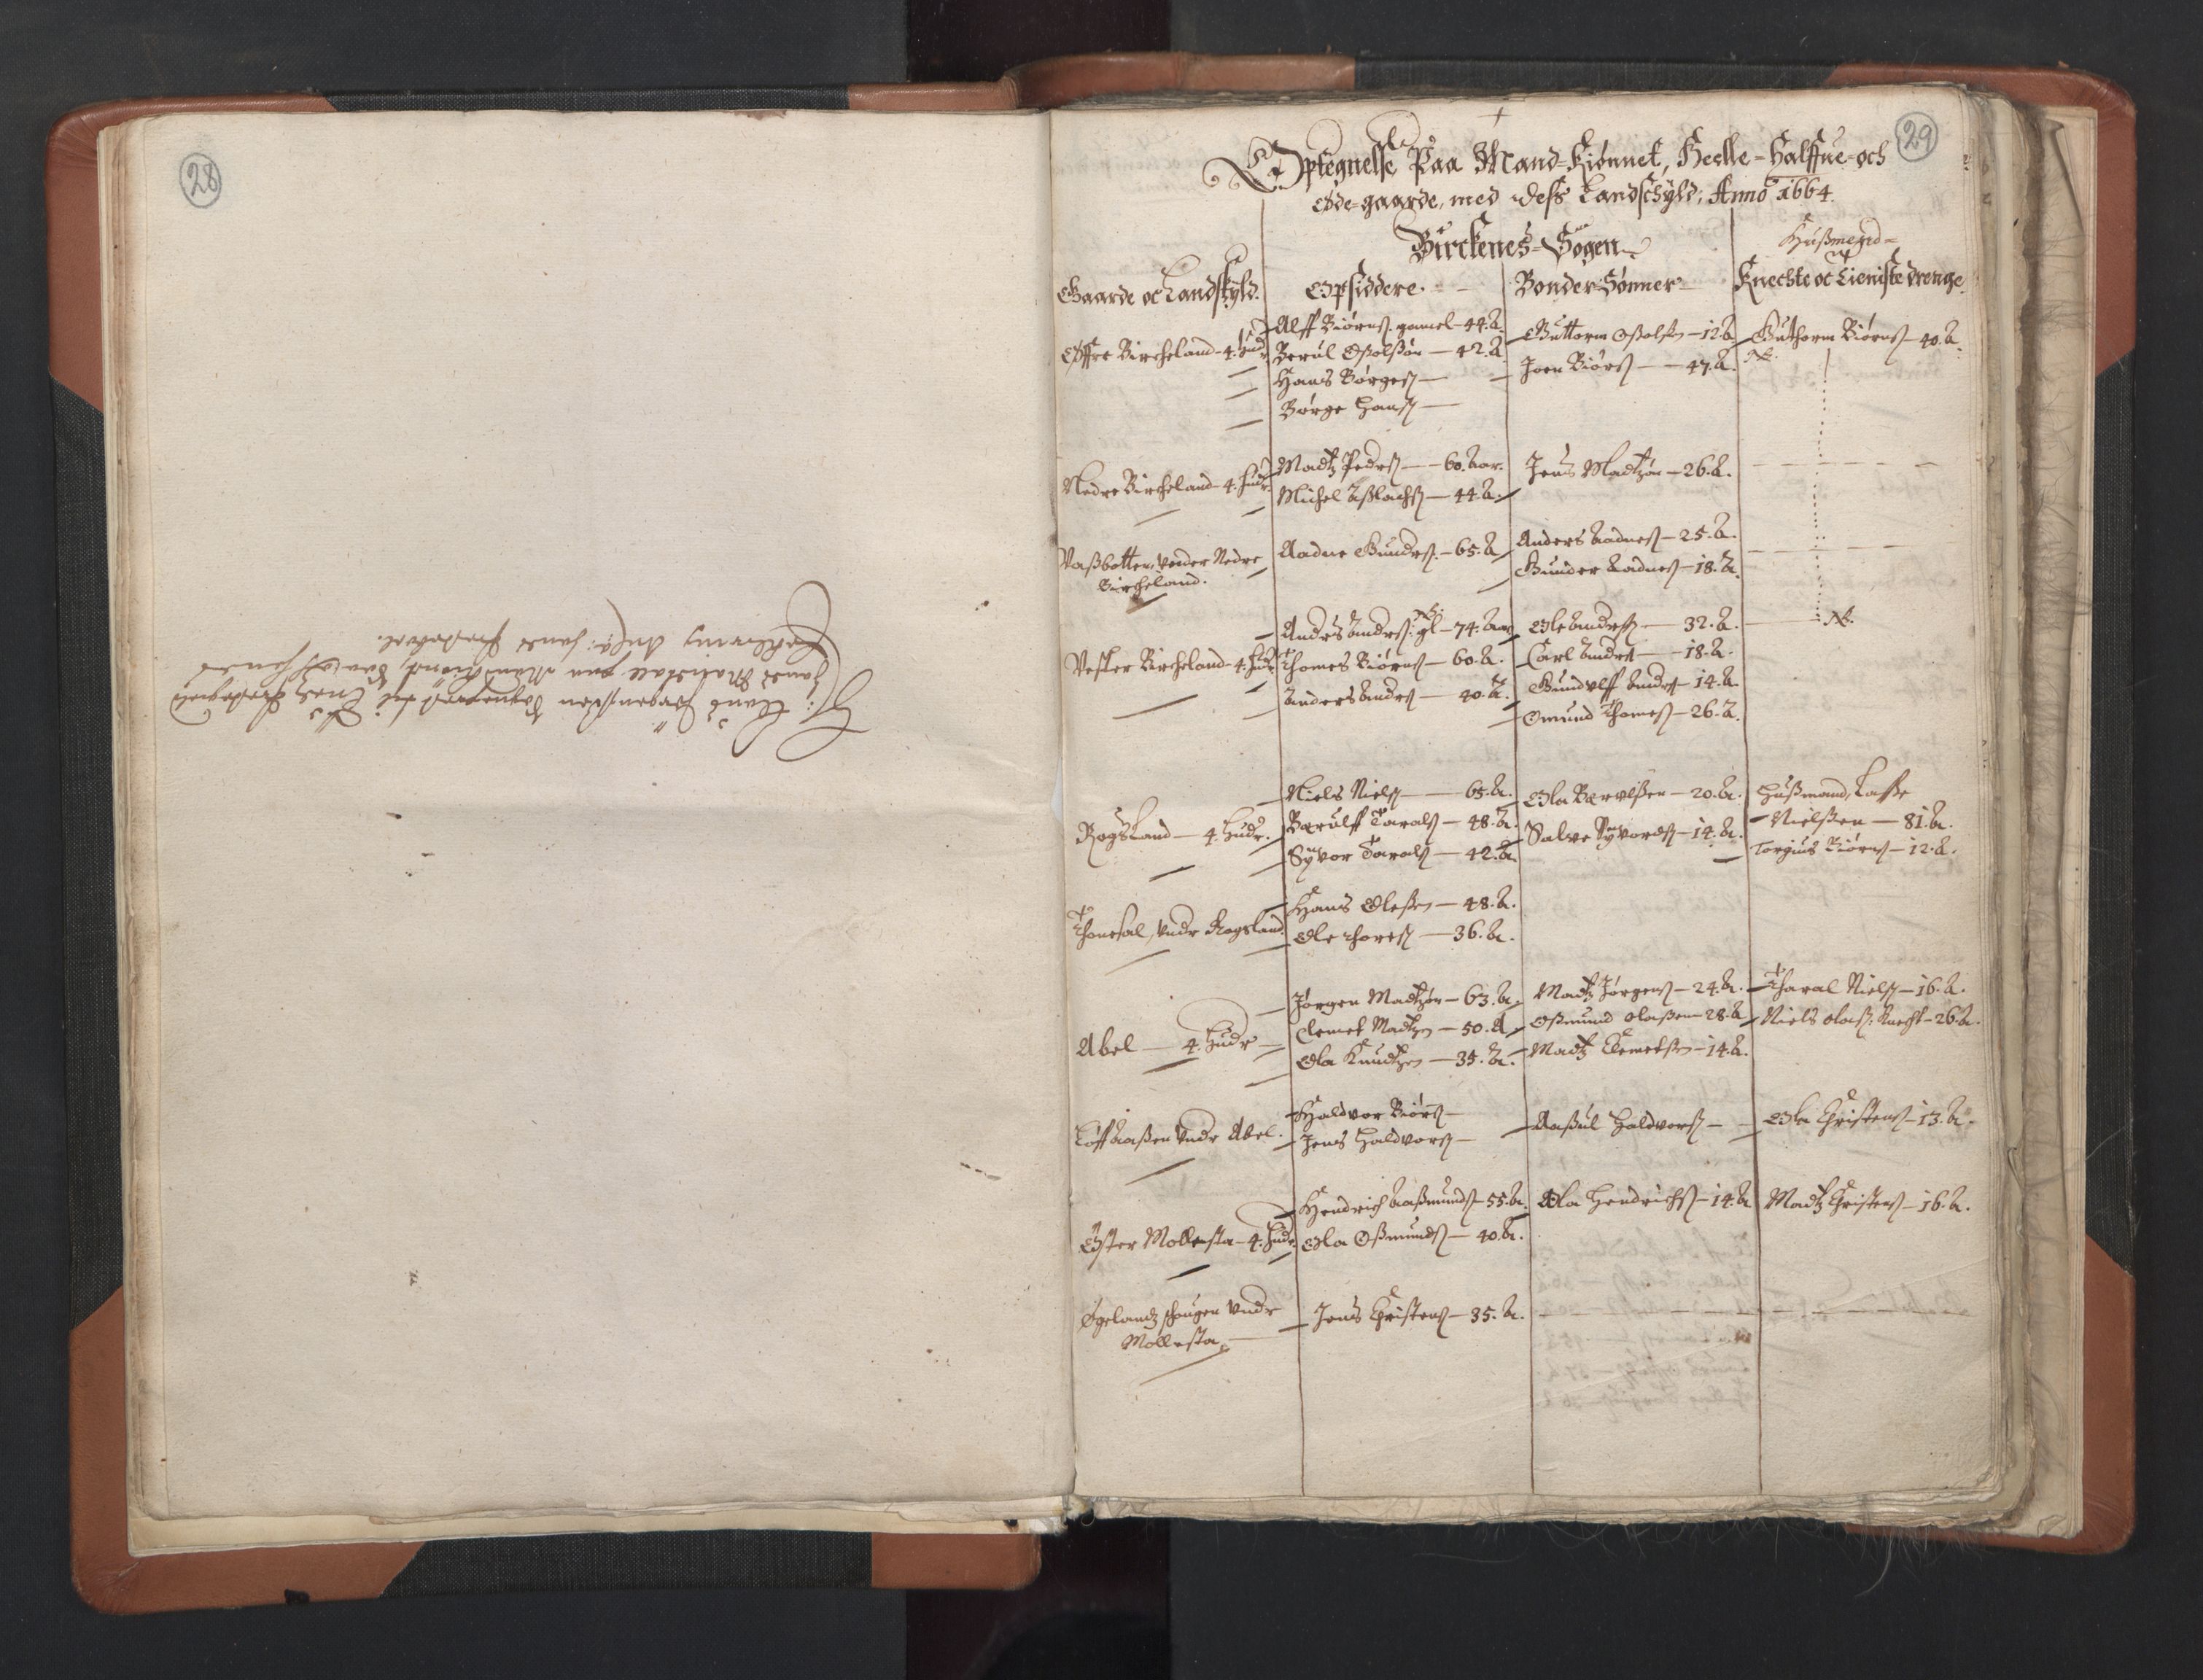 28
29
Optegnelse Paa Mand-Kiønnet, Heelle-Halffue-och
Øde-gaarde, med dess Landschyld; Anno 1664.
Birckenes-Sogen
Hussmend
Gaarde oc Landskyld.
Opsiddere.
Bonder-Sønner
Knechte oc tieniste drenge
Øffre Bircheland - 4. hud
Alff Biørnß. gamel - 44. A.
Guttorm Oßolßn - 12. A
Guthorm Biørnß - 40. A.
Berul Oßolßøn - 42. A.
Joen Biørß - 47. A.
Hans Børgeß
Børge Hanß
Nedre Bircheland - 4. hudr
Madtz Pedrß - 60. Aar.
Jens Madtzøn - 26. A.
Michel Aßlachß - 44. A.
Vaßbotten, under Nedre
Bircheland.
Aadne Gundrß - 65. A
Anders Aadneß - 25. A.
Gunder Aadneß - 18. A.
Vester Bircheland - 4. hudr
Andrs Andrß. gl - 74. Aar
Ole Andrß - 32. A.
N.
Thomes Biørnß - 60. A.
Carl Andrß - 18. A.
Anders Andrß - 40. A.
Gundulff Andrß - 14. A
Omund Thomeß - 26. A.
Rogsland - 4. hudr.
Niels Nielß - 65. A.
Ola Bærulßen - 20. A.
Hußmand, Lasse
Nielßen - 81. A.
Bærulff Taralß - 48. A.
Salve Syvordß - 14. A.
Torgius Biørnß - 12. A.
Syvor Taralß - 42. A
Thonesal, undr Rogsland.
Hans Oleßen - 48. A.
Ole Thoreß - 36. A.
Abel - 4. hudr
Jørgen Madtzøn - 63. A.
Madtz Jørgenß - 24. A.
Tharal Nielß - 16. A.
Clemet Madtzen - 50. A
Oßmund Olaßen - 28. A
Niels Olaß: Knecht - 26. A.
Ola Knudtzen - 35. A.
Madtz Clemetßen - 14. A.
Løffaaßen undr Abel.
Haldvor Biørß
Aaßul Haldvorß
Ola Christenß - 13. A.
Jens Haldvorß
Øster Mollesta - 4. hudr
Hendrich Aaßmundß - 55. A.
Ola Hendrichß - 14. A
Madtz Christenß - 16. A.
Ola Oßmundß - 40. A.
Øgelandtz schougen undr
Mollesta
Jens Christenß - 35. A.